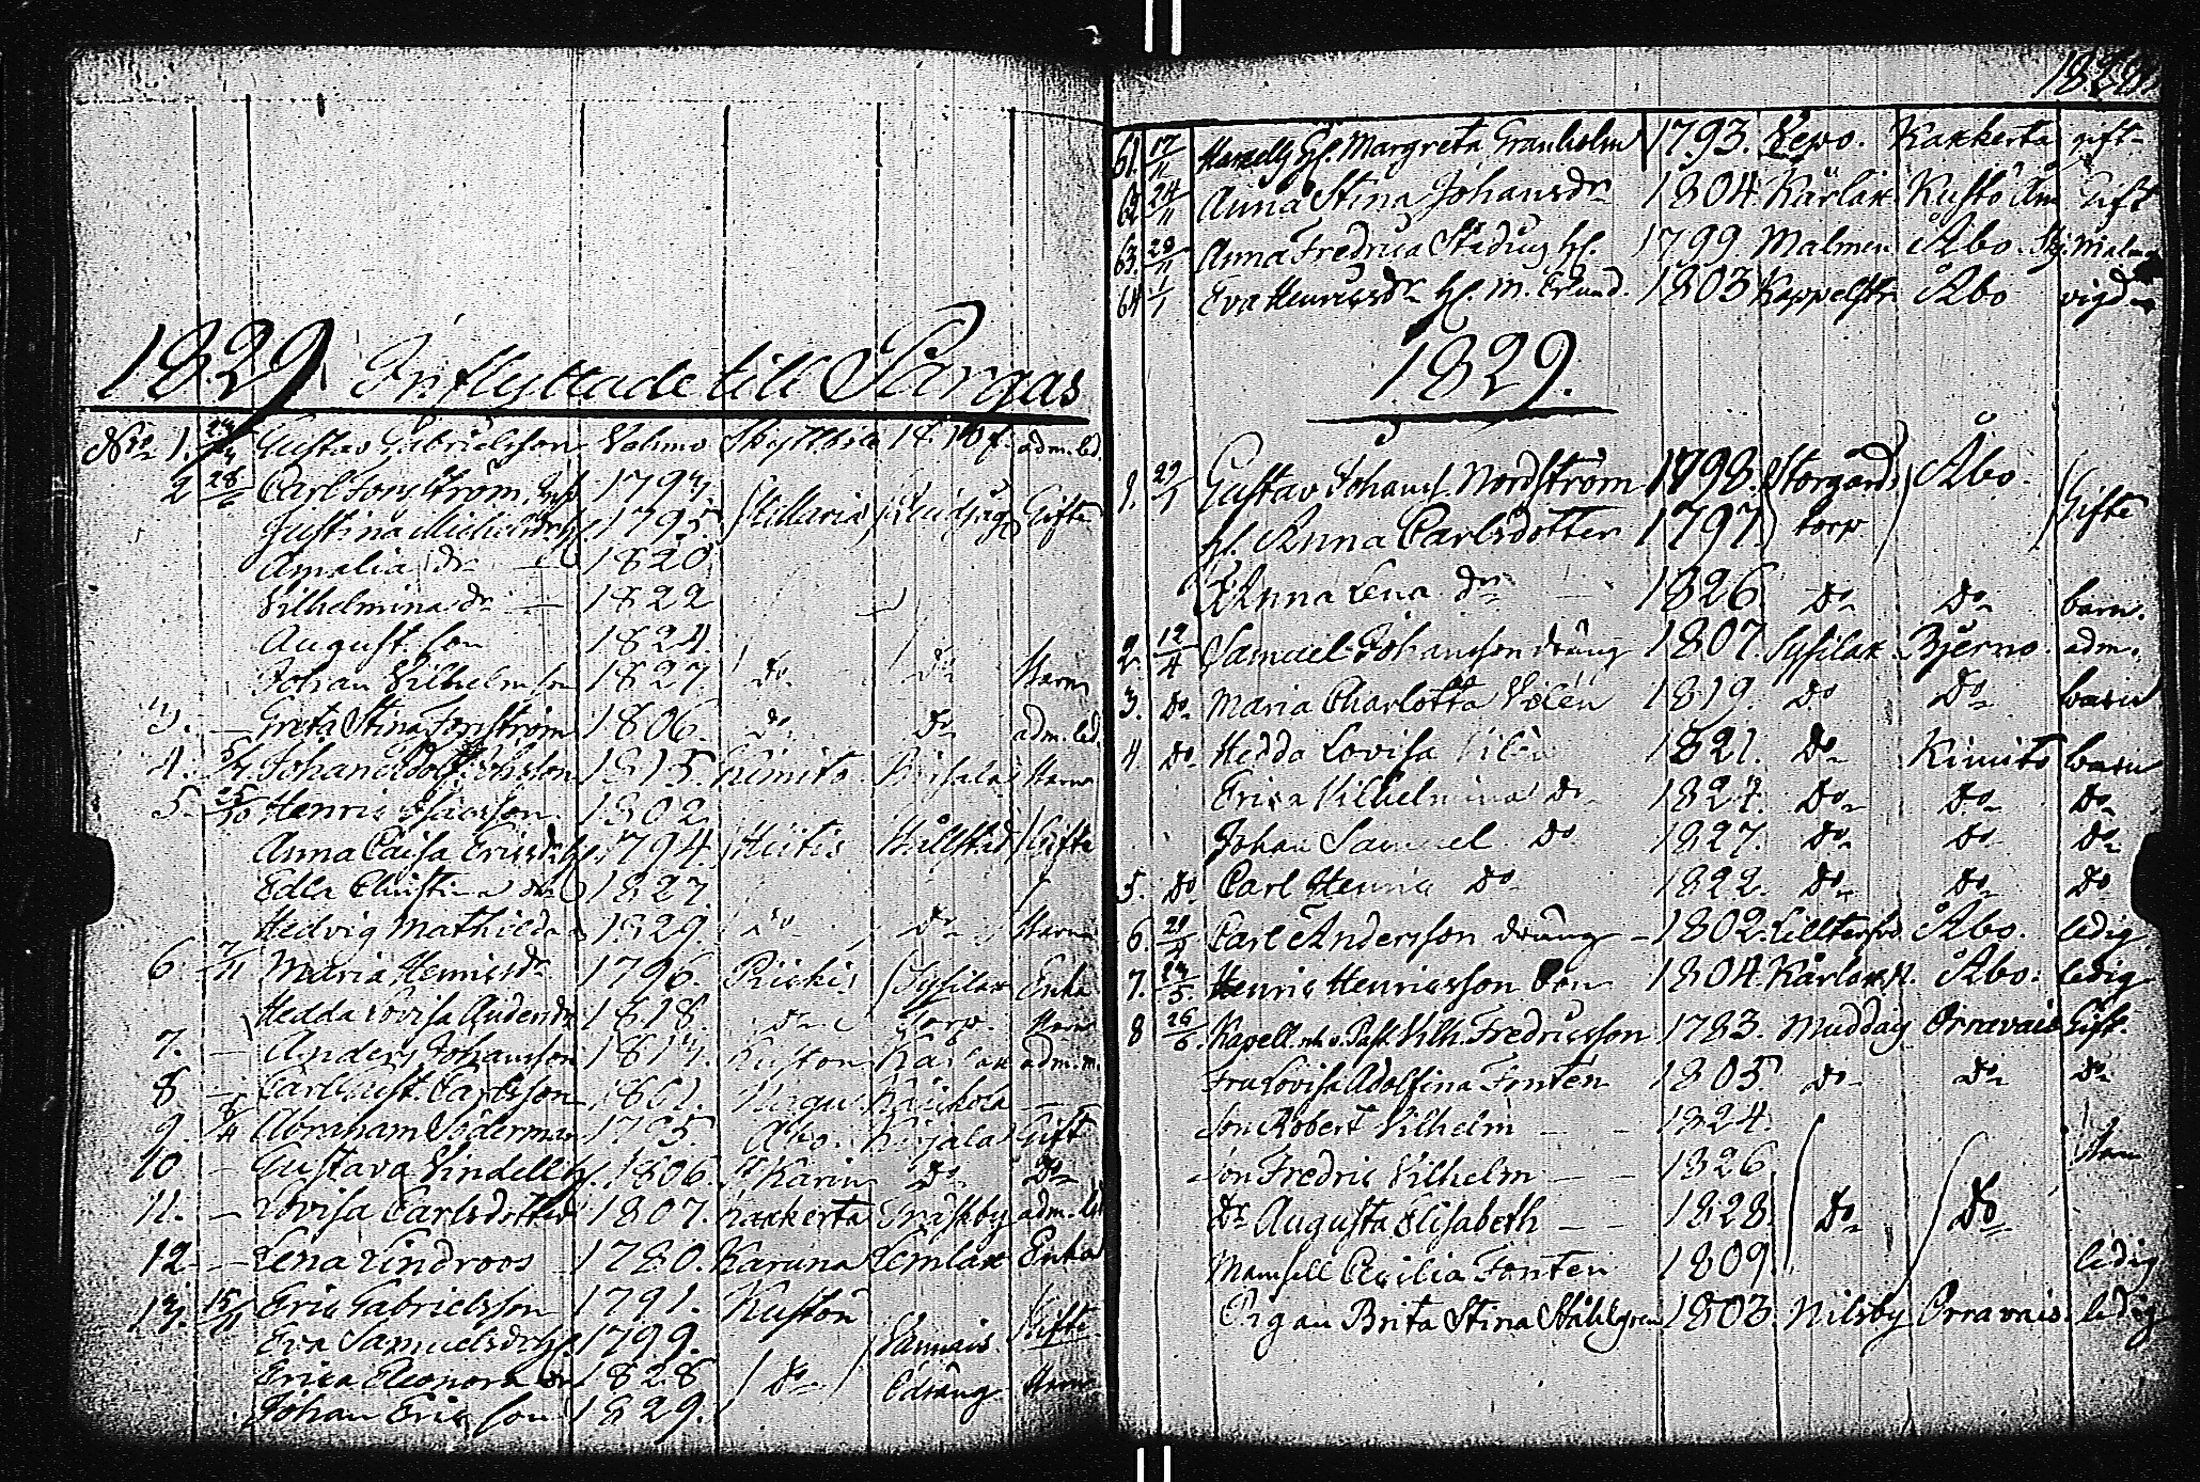 1829. Inflyttade till Pargas
No 1. Gustav Gabrielsson Vehmo adm. led.
2 28/6 Carl Forsström, 1794. Gifta
Justina Michelsdr hu 1795.
Amalia dr — 1820.
Vilhelmina dr — 1822
August son 1824.
Johan Vilhelm son 1827. do do Barn
3. — Greta Stina Forsström 1806. do do adm. led.
4. Johan Adolf 1815. Kimito Barn
5. 25/10 Henric Isacsson 1802.
Anna Caisa Ericsdr hu. 1794. Hiitis Mållstad Gifta
Edla Christina dr 1827.
Hedvig Mathilda 1829. do do Barn
6. Maria Henricsdr 1796. Piickis Sysilax Enka
Hedda Lovisa Andersdr 1818. do torp. Barn
7. — Anders Johansson 1814. Kuston Kärlax adm.
8 — Carl Gust. Carlsson —
9. Abraham Söderman 1795. Åbo. Gift
10 — Gustava Vindell hu. 1806. St Karin do do
11. — Lovisa Carlsdotter 1807. Kakkerta Träskby adm. led
12. — Lena Lindroos 1780. Karuna Lemlax Enka
13. 15/11 Eric Gabrielsson 1791. Kuston
Eva Samuelsdr hu. 1799. Vannais Gifte.
Erica Eleonora dr 1828 do Ersäng Barn
Johan Eric son 1829.
1828.
61. 17/11 Margreta Granholm 1793. Lepo. Kakkerta gift
62 24/11 Anna Stina Johansdr 1804. Kärlax Kustö Gift
63. 28/11 Anna Fredrica Stadius hu. 1799. Malmen Åbo.
64 1/1 Eva Henricsdr hu. M. Erlund. 1803 Kappelstr. Åbo vigd
1829.
1. 29/1 Gustav Johans. Nordström 1798. Storgårds Åbo. Gifte
hu. Anna Carlsdotter 1797. torp
Anna Lena dr 1826. do do barn.
2. 12/4 Samuel Johansson dräng 1807. Sysilax. Bjerno. adm.
3. do Maria Charlotta Vilén 1819. do do barn
4. do Hedda Lovisa Vilén 1821. do Kimito barn
Erica Vilhelmina dr 1824. do do do
Johan Samuel do 1827. do do do
5. do Carl Henric do 1822. do do do
6. Carl Andersson dräng — 1802. Åbo. ledig
7. 24/5. Henric Henricsson 1804. Kärlax Åbo. ledig
8 26/6. Kapell. Vilh. Fredricsson 1783. Muddais Orravais Gift.
Fru Lovisa Adolfina Fontén 1805. do do do
Son Robert Vilhelm — — 1824.
Son Fredric Vilhelm — — 1826 Barn
Dr Augusta Elisabeth — — 1828. do do
Mamsell Cecilia Fontén 1809. ledig
Pigan Brita Stina Ståhlgren 1803. Nilsby Orravais. ledig